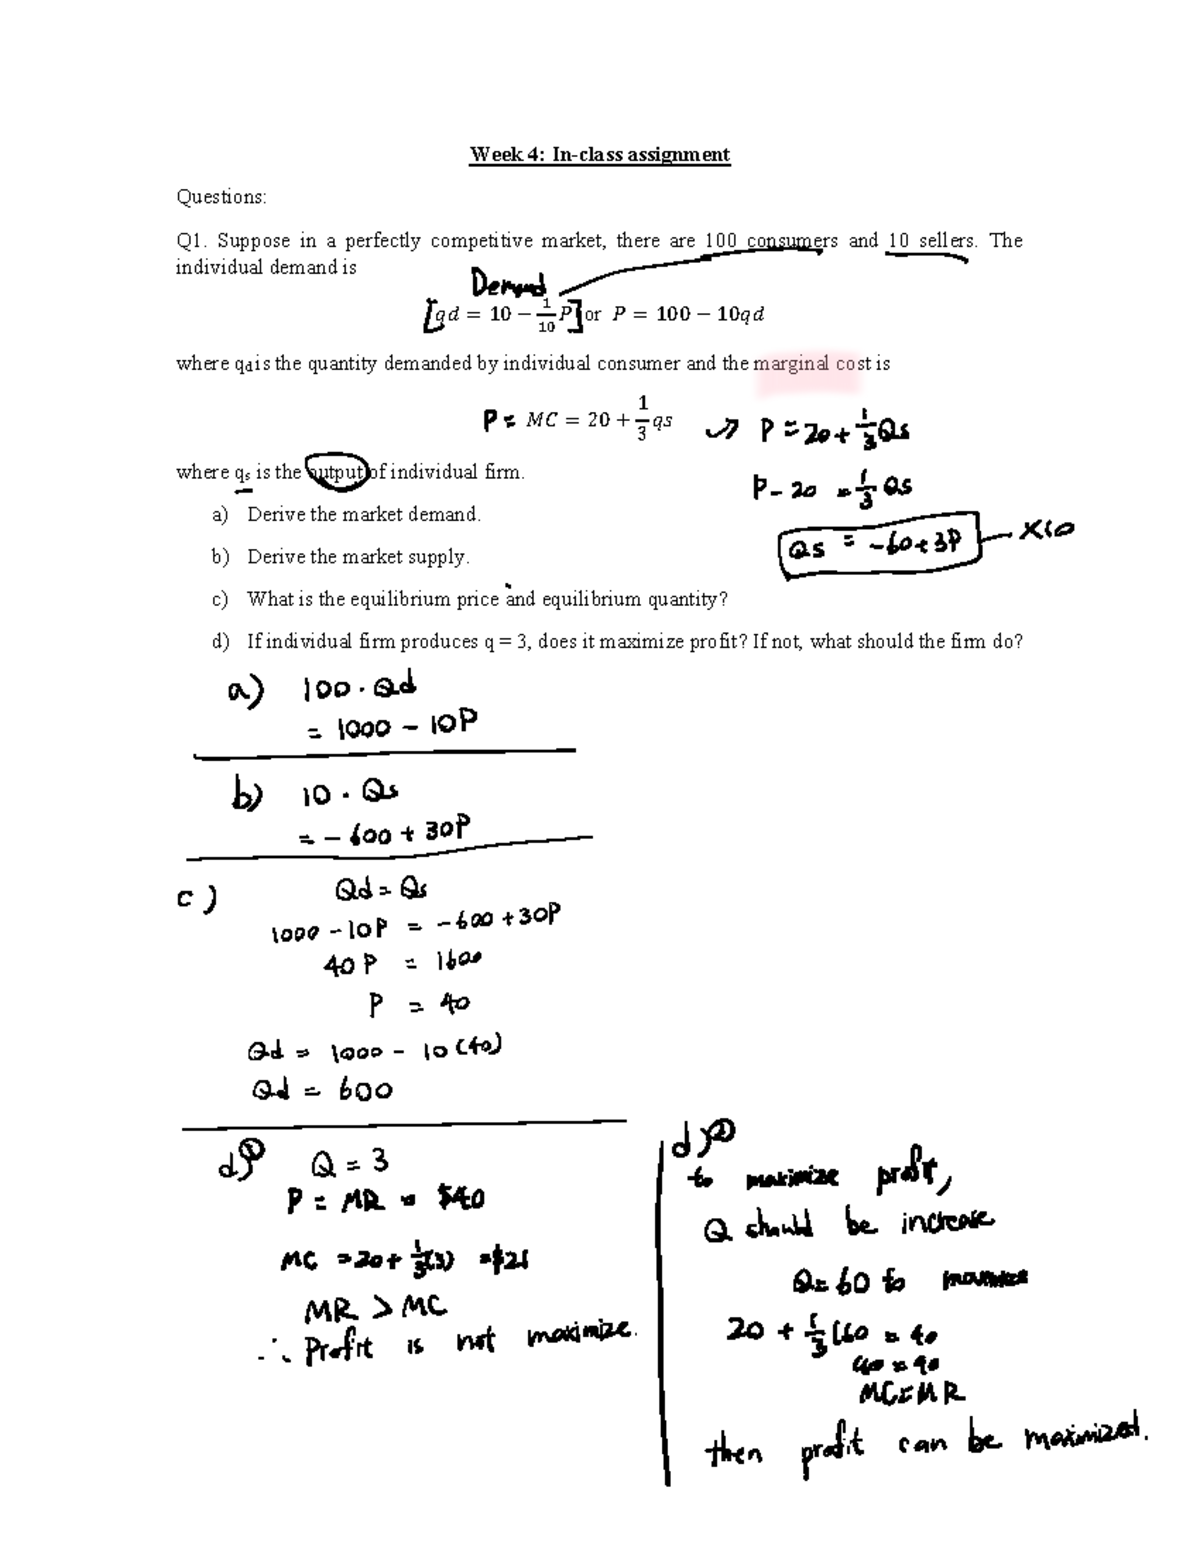 Week 4: In-class assignment
Questions:
Q1. Suppose in a perfectly competitive market, there are 100 consumers and 10 sellers. The
individual demand is
Demand
[qd = 10 − 1/10 P] or P = 100 − 10qd
where qd is the quantity demanded by individual consumer and the marginal cost is
P = MC = 20 + 1/3 qs → P = 20 + 1/3 Qs
where qs is the output of individual firm.
P - 20 = 1/3 Qs
a) Derive the market demand.
Qs = -60 + 3P — X10
b) Derive the market supply.
c) What is the equilibrium price and equilibrium quantity?
d) If individual firm produces q = 3, does it maximize profit? If not, what should the firm do?
a) 100 · Qd
= 1000 - 10P
b) 10 · Qs
= - 600 + 30P
c) Qd = Qs
1000 - 10P = -600 + 30P
40P = 1600
P = 40
Qd = 1000 - 10(40)
Qd = 600
d) ① Q = 3
P = MR = $40
MC = 20 + 1/3(3) = $21
MR > MC
∴ Profit is not maximize.
d) ②
to maximize profit,
Q should be increase
Q = 60 to maximize
20 + 1/3(60 = 40
40 = 40
MC = MR
then profit can be maximized.